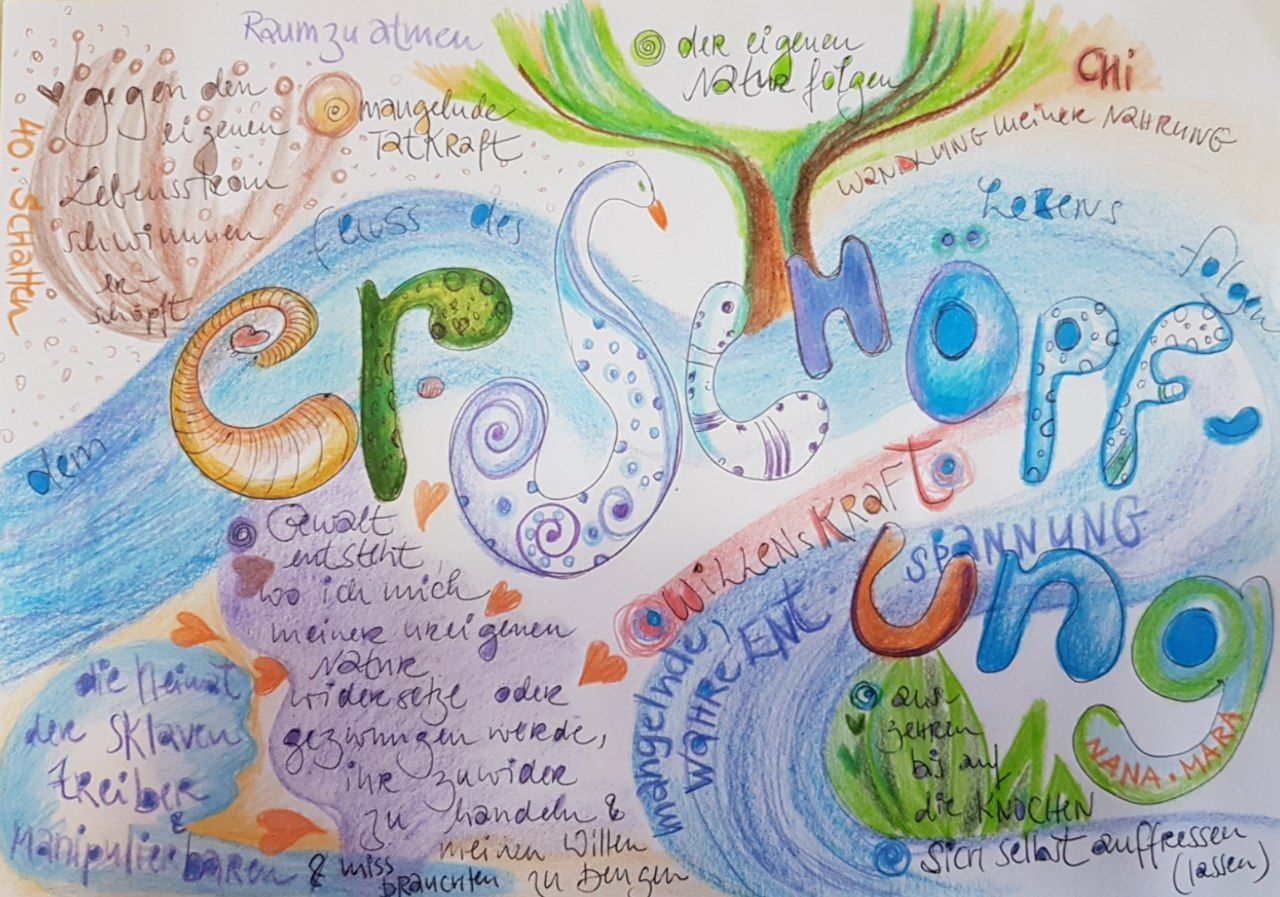 Raum zu atmen
der eigenen
Natur folgen
Chi
gegen den
eigenen
Lebensstrom
schwimmen
er-
schöpft
40. Schatten
mangelnde
Tatkraft
Wandlung meiner Nahrung
dem
Fluss des
Lebens
folgen
ErSCHÖPF-
ung
Willenskraft
mangelnde,
wahre Ent-
spannung
Gewalt
entsteht,
wo ich mich
meiner ureigenen
Natur
widersetze oder
gezwungen werde,
ihr zuwider
zu handeln &
meinen Willen
zu beugen
die Heimat
der Sklaven
treiber
&
manipulierbaren
& miss
brauchten
aus-
zehren
bis auf
die Knochen
sich selbst auffressen
(lassen)
NANA.MARA